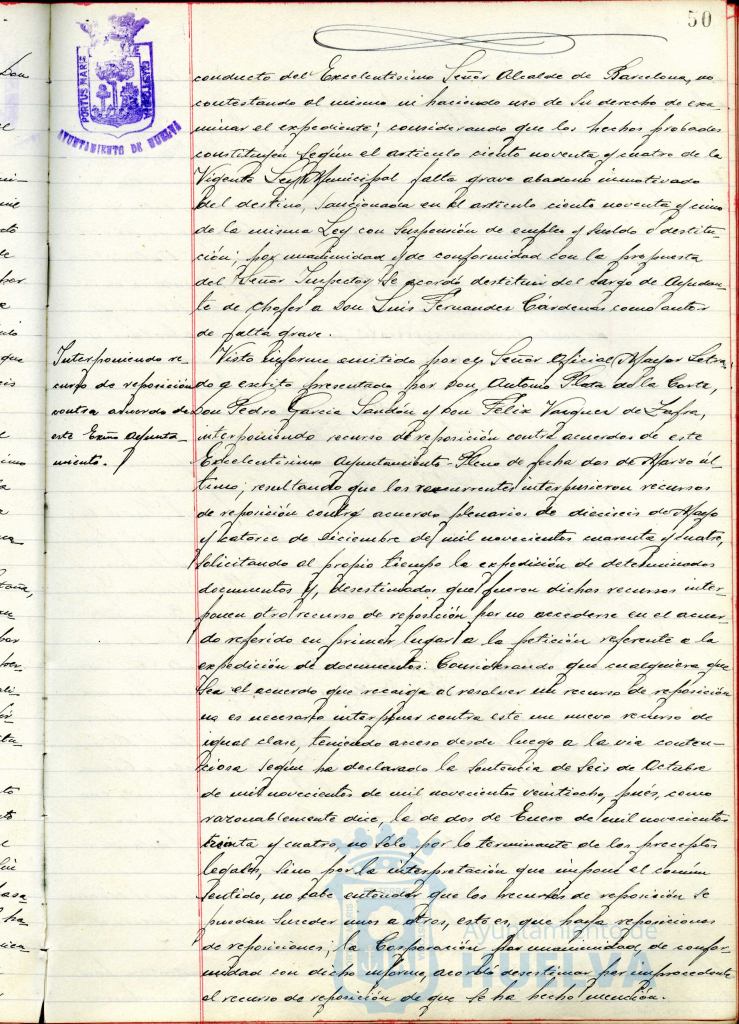 50
PORTUS MARIS
CUSTODIA
AYUNTAMIENTO DE HUELVA
conducto del Excelentisimo Señor Alcalde de Barcelona, no
contestando al mismo ni haciendo uso de su derecho de exa-
minar el expediente; considerando que los hechos probados
constituyen según el articulo ciento noventa y cuatro de la
Vigente Ley Municipal falta grave abadono inmotivado
del destino, sancionada en el articulo ciento noventa y cinco
de la misma Ley con suspensión de empleo y sueldo o destitu-
ción; por unanimidad y de conformidad con la propuesta
del Señor Inspector, se acordó destituir del cargo de Ayudan-
te de chofer a Don Luis Fernandez Cárdenas como autor
de falta grave.
Interponiendo re-
curso de reposición
contra acuerdo de
este Excmo Ayunta-
miento.
Visto informe emitido por el Señor Oficial Mayor Letra-
do y escrito presentado por Don Antonio Plata de la Corte,
Don Pedro Garcia Sandón y Don Felix Vazquez de Zafra,
interponiendo recurso de reposición contra acuerdos de este
Excelentisimo Ayuntamiento-Pleno de fecha dos de Marzo úl-
timo; resultando que los recurrentes interpusieron recursos
de reposición contra acuerdo plenarios de dieciseis de Mayo
y catorce de diciembre de mil novecientos cuarenta y cuatro,
solicitando al propio tiempo la expedición de determinados
documentos y, desestimados que fueron dichos recursos inter-
ponen otro recurso de reposición por no accederse en el acuer-
do referido en primer lugar a la petición referente a la
expedición de documentos: Considerando que cualquiera que
sea el acuerdo que recaiga al resolver un recurso de reposición
no es necesario interponer contra este un nuevo recurso de
igual clase, teniendo acceso desde luego a la via conten-
ciosa según ha declarado la Sentencia de Seis de Octubre
de mil novecientos de mil novecientos veintiocho, pués, como
razonablemente dice, la de dos de Enero de mil novecientos
treinta y cuatro, no solo por lo terminante de los preceptos
legales, sino por la interpretación que impone el común
sentido, no cabe entender que los recursos de reposición se
puedan suceder unos a otros, esto es, que haya reposiciones
de reposiciones; la Corporación por unanimidad, de confor-
midad con dicho informe, acordó desestimar por improcedente
el recurso de reposición de que se ha hecho mención.
Ayuntamiento de
HUELVA